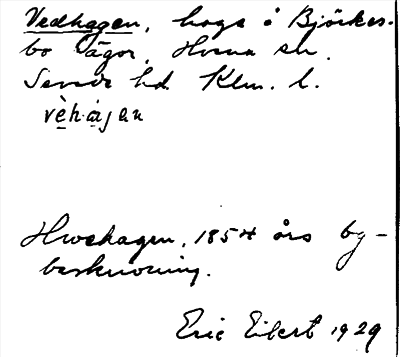 Vedhagen, hage å Björkes-
bo ägor, Hvena sn.
Sevede hd. Klm. l.
vèhàjan
Hvehagen, 1854 års by-
beskrivning.
Eric Eilert 1929